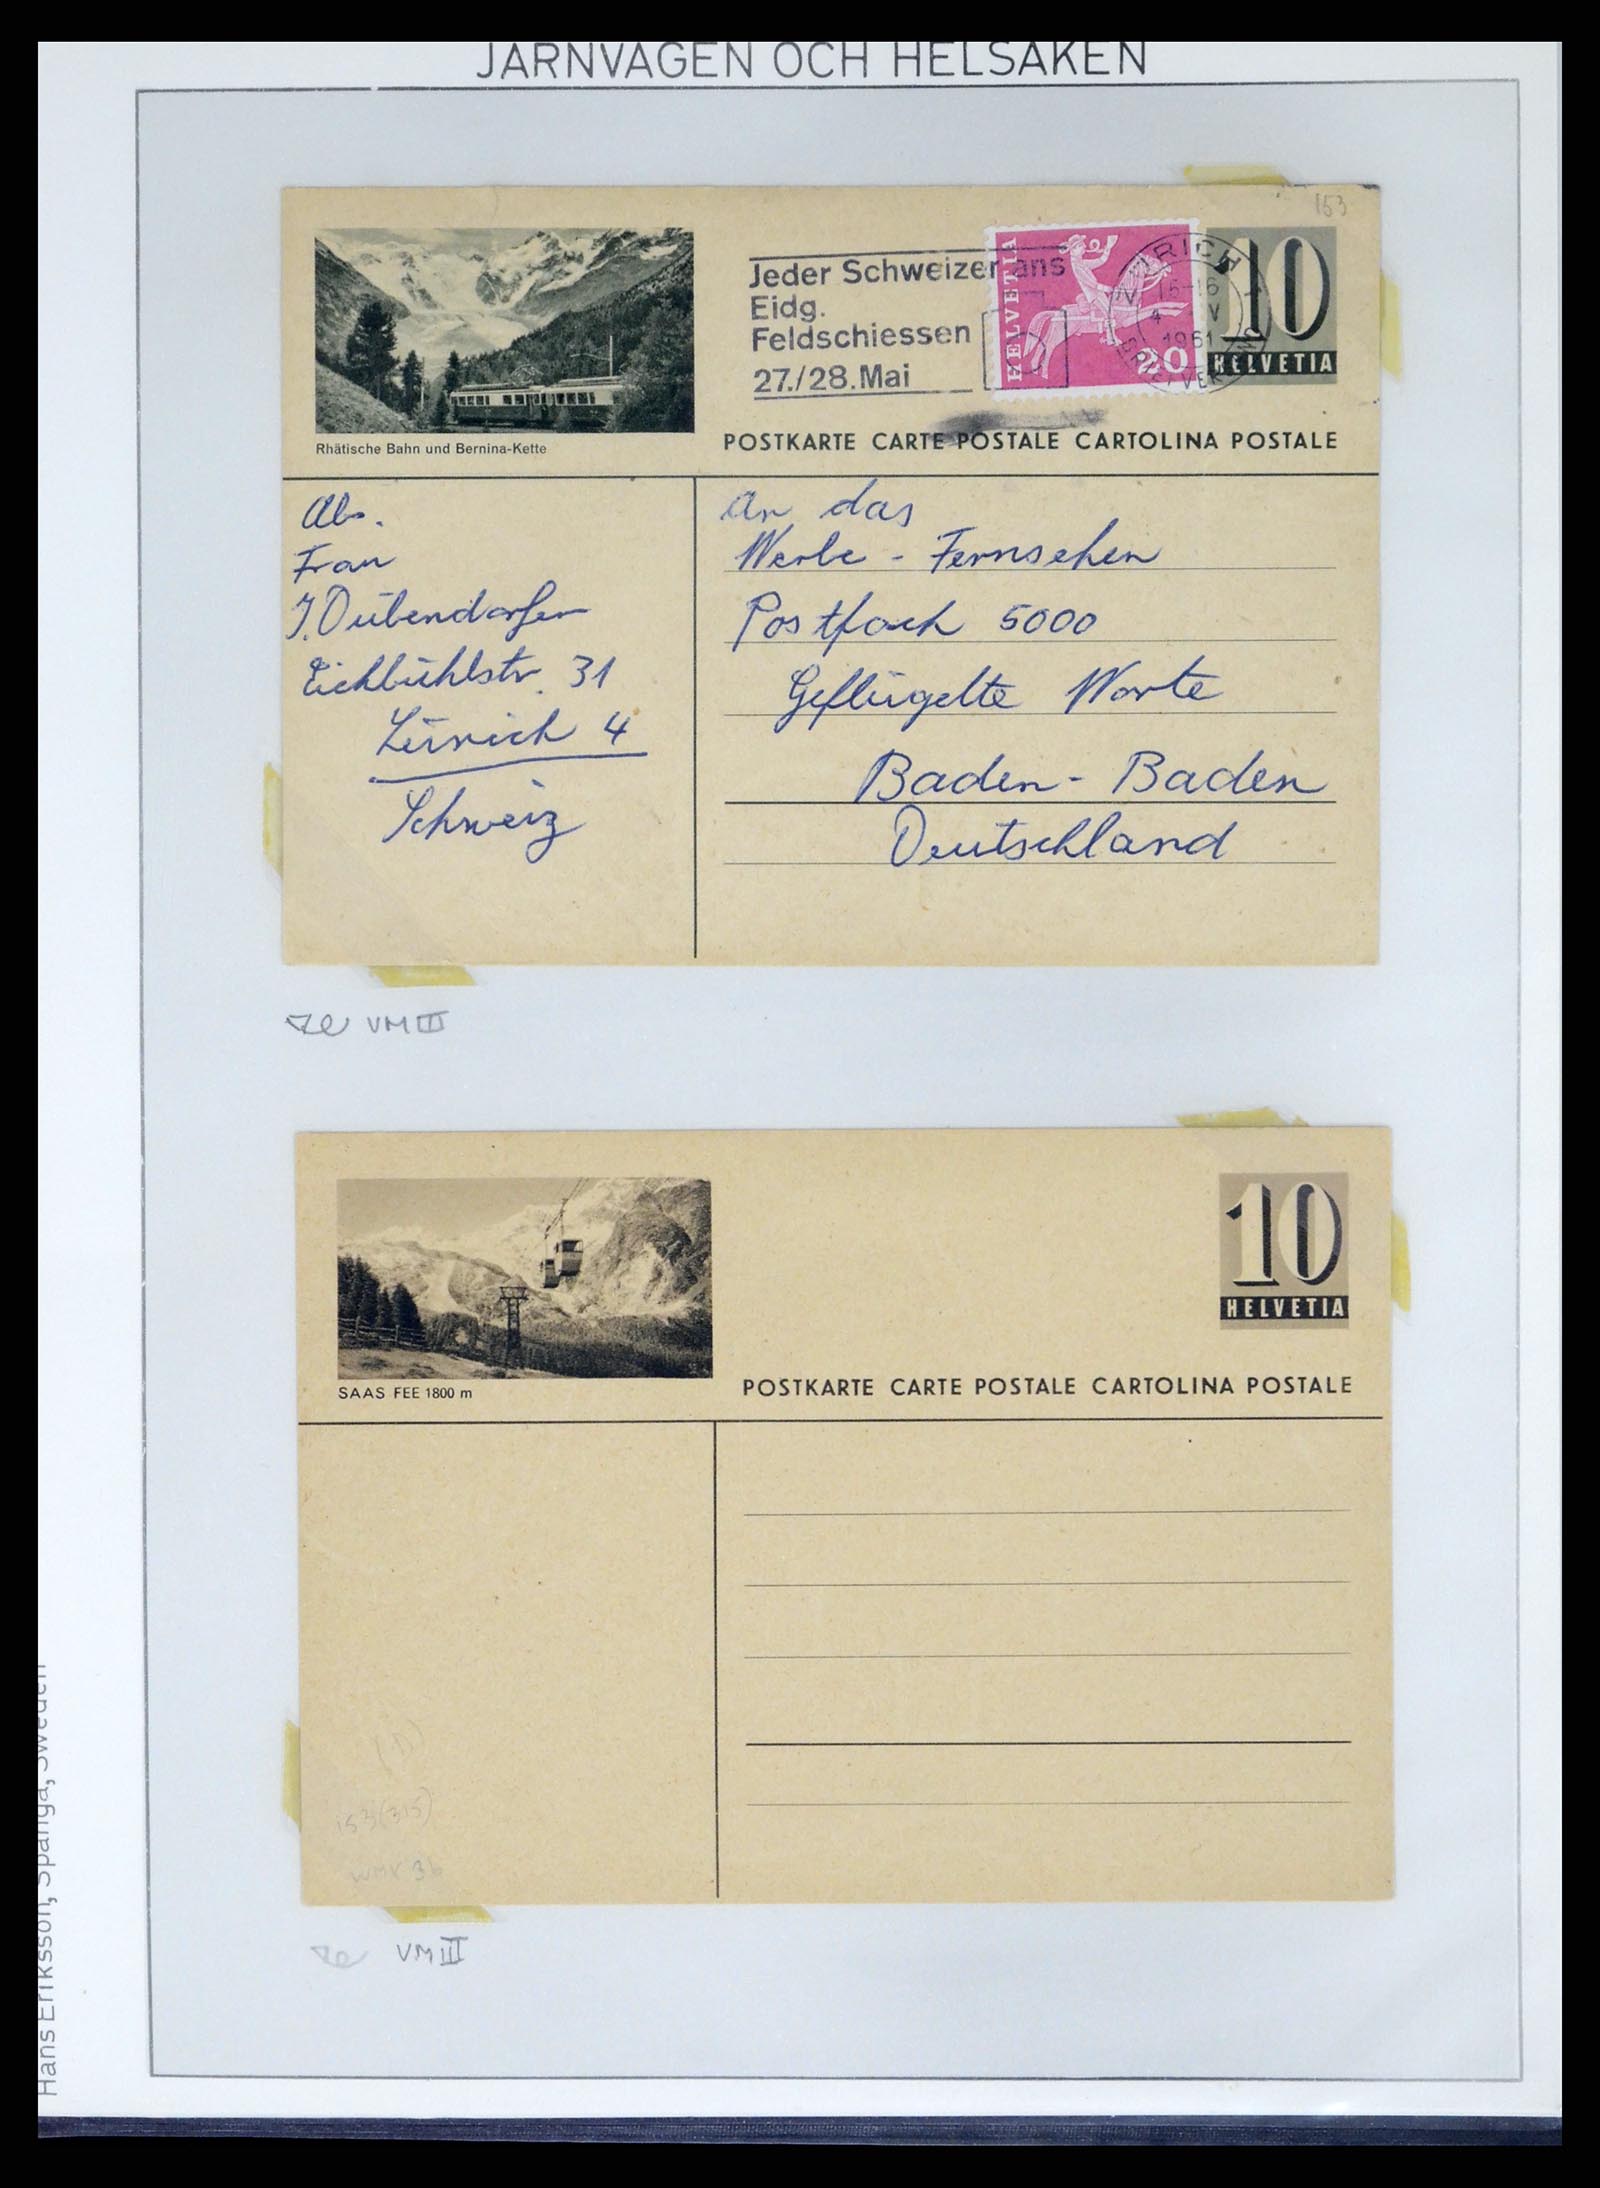 JÄRNVÄGEN OCH HELSAKEN
153
Jeder Schweizer ans
Eidg.
Feldschiessen
27./28. Mai
HELVETIA
20
15-16
1961
10
HELVETIA
Rhätische Bahn und Bernina-Kette
POSTKARTE CARTE POSTALE CARTOLINA POSTALE
Abs.
Frau
J. Dübendorfer
Eichbühlstr. 31
Zürich 4
Schweiz
An das
Werbe-Fernsehen
Postfach 5000
Geflügelte Worte
Baden-Baden
Deutschland
VM III
10
HELVETIA
SAAS FEE 1800 m
POSTKARTE CARTE POSTALE CARTOLINA POSTALE
(D)
153(315)
VM III
Hans Eriksson, Spånga, Sweden